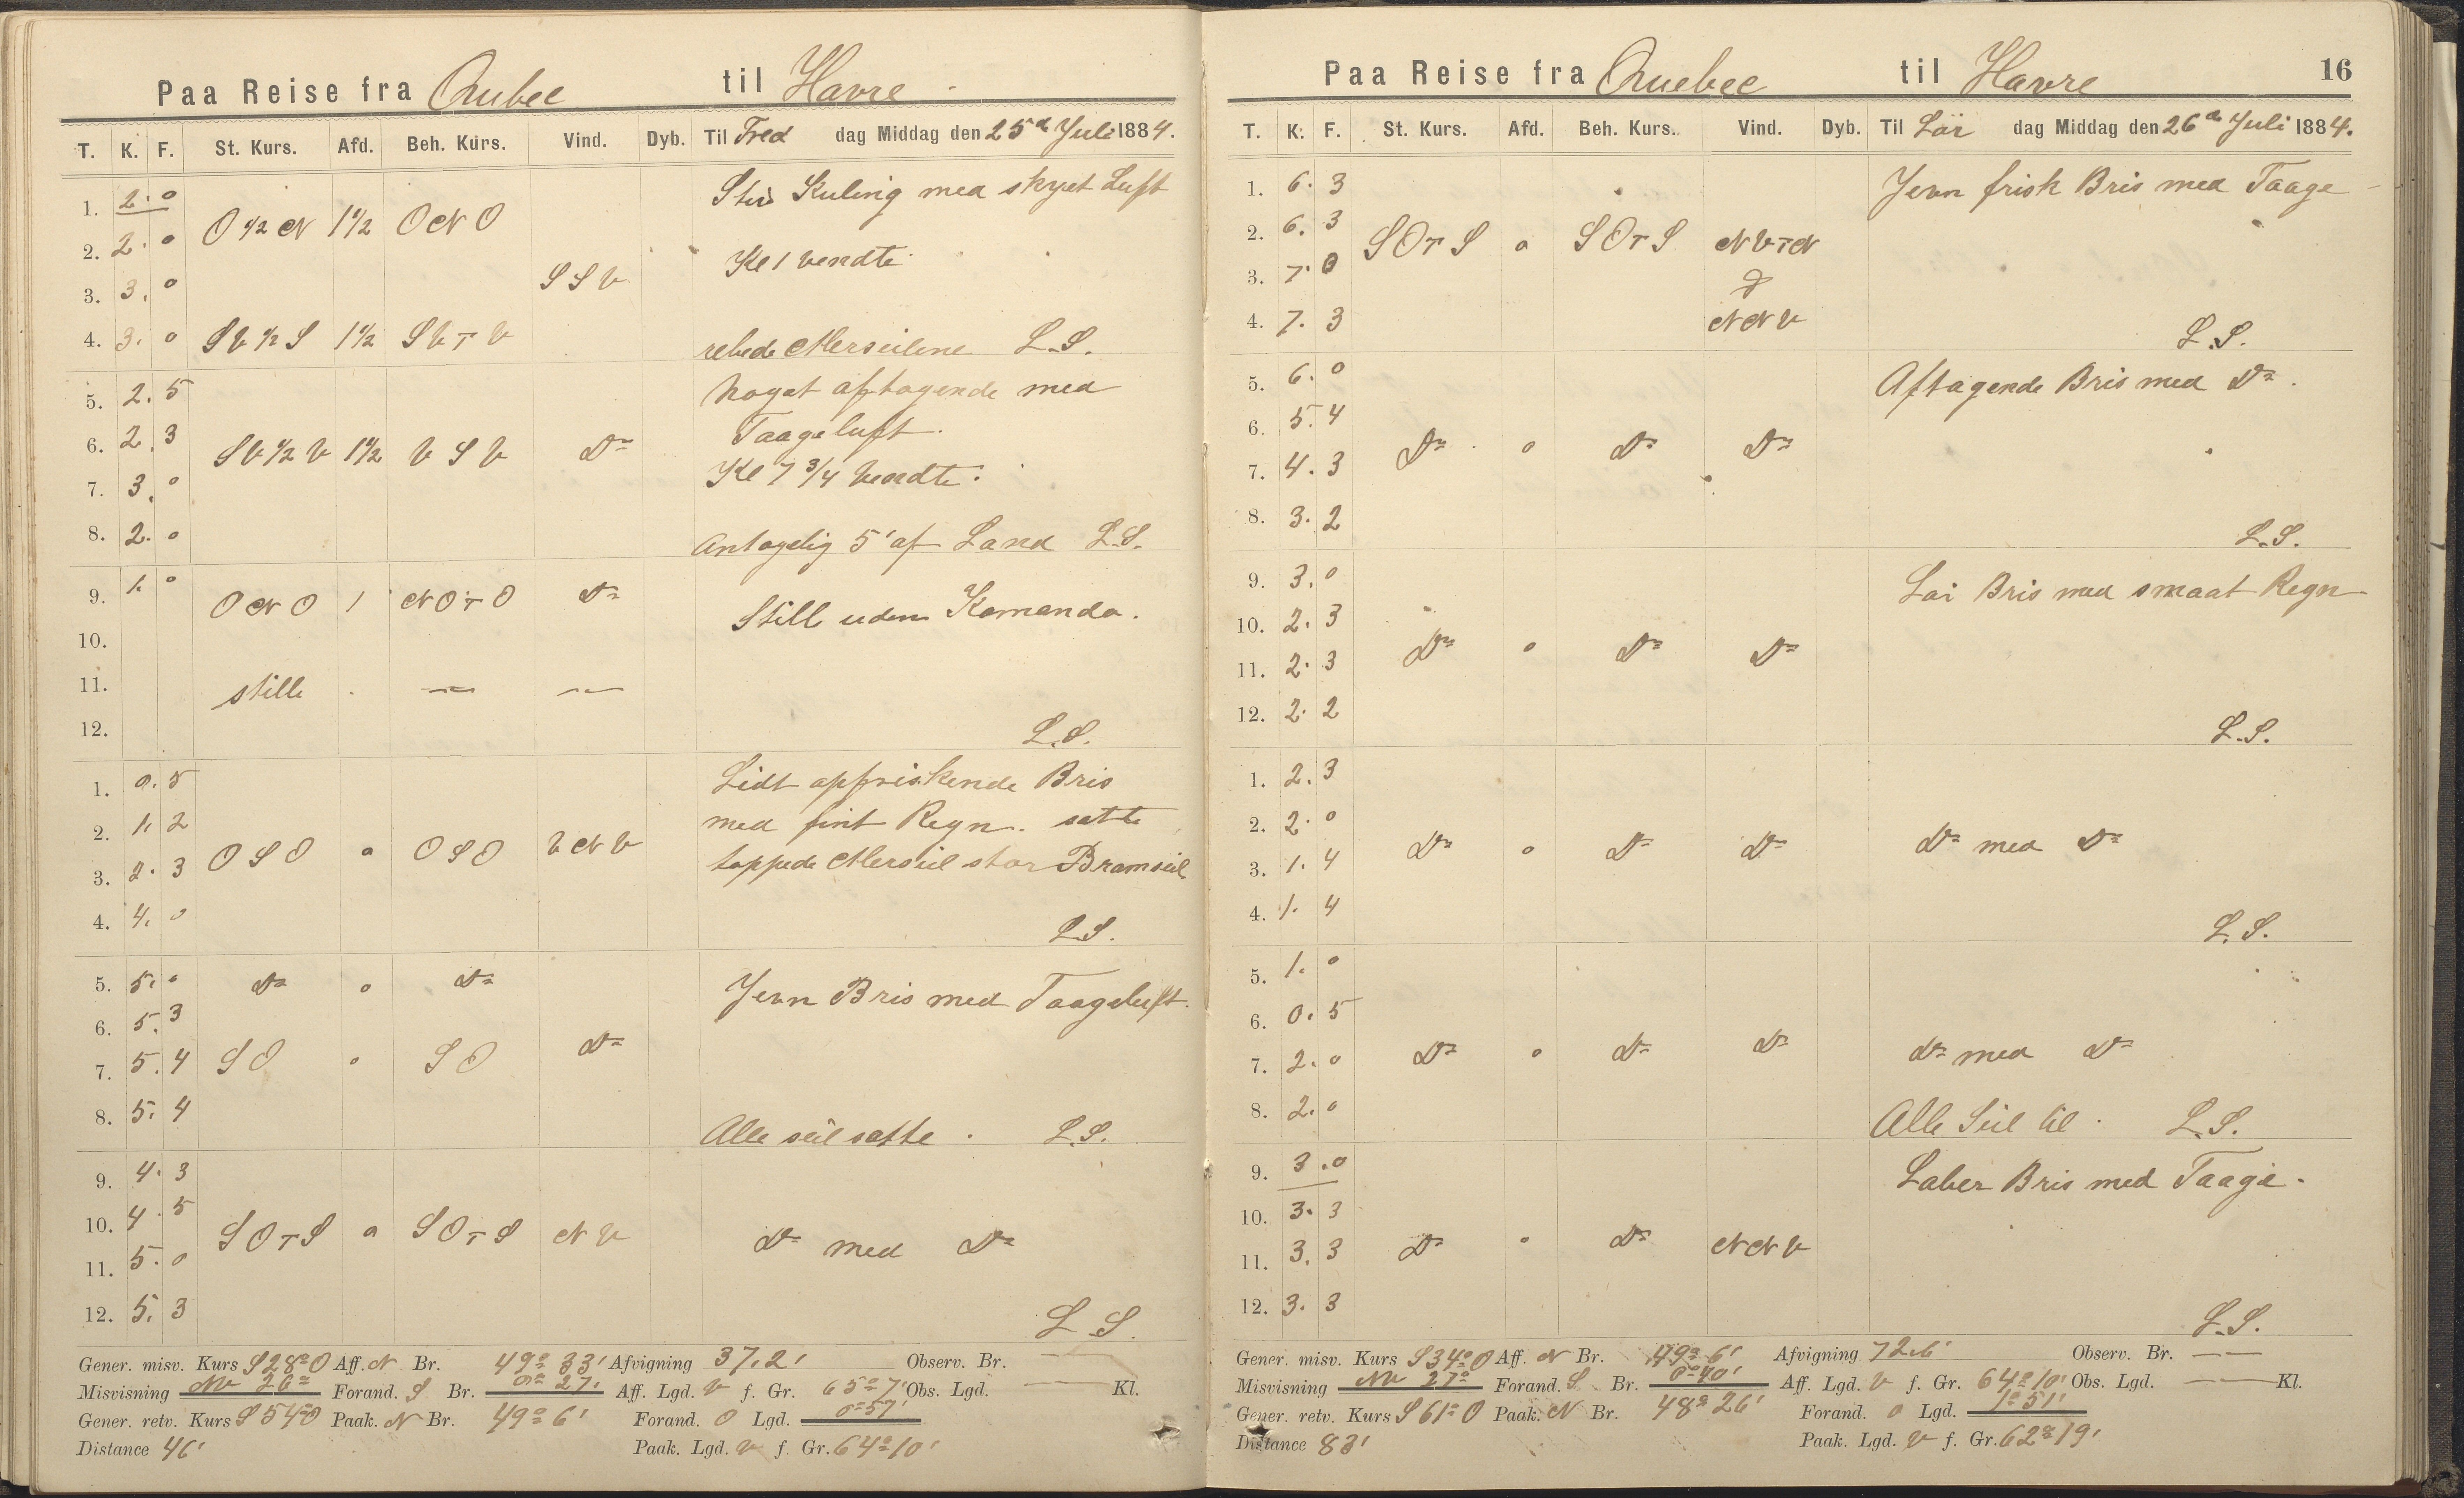 Paa Reise fra Qubec til Havre
T. K. F. St. Kurs. Afd. Beh. Kurs. Vind. Dyb. Til Fred dag Middag den 25de Juli 1884.
Stiv Kuling med skyet Luft
1. 2. 0
O ½ N 1½ ONO
2. 2. 0
Kl 1 vendte
SSV
3. 3. 0
4. 3. 0 SV ½ S 1½ SVTV
rebede Merseilene L.S.
5. 2. 5
Noget aftagende med
Taageluft.
6. 2. 3
SV ½ V 1½ VSV Do
Kl 7 3/4 vendte.
7. 3. 0
8. 2. 0
Antagelig 5' af Land L.S.
9. 1. 0
ONO 1 NOTO Do
Still uden Komando.
10.
11. stille — —
12.
L.S.
Lidt opfriskende Bris
1. 0. 5
2. 1. 2
med fint Regn. satte
OSO 0 OSO VNV
3. 2. 3
toppede Merseil stor Bramseil
4. 4. 0
L.S.
5. 5. 0 Do 0 Do
Jevn Bris med Taageluft.
6. 5. 3
Do
7. 5. 4 SO 0 SO
8. 5. 4
Alle seil satte. L.S.
9. 4. 3
10. 4. 5
SOTS 0 SOTS NV
Do med Do
11. 5. 0
12. 5. 3
L.S.
Gener. misv. Kurs S28°O Aff. N Br. 49° 33' Afvigning 37.2' Observ. Br. —
Misvisning NV 26° Forand. S Br. 0° 27' Aff. Lgd. V f. Gr. 65° 7' Obs. Lgd. — Kl.
Gener. retv. Kurs S54°O Paak. N Br. 49° 6' Forand. O Lgd. 0° 57'
Distance 46' Paak. Lgd. V f. Gr. 64° 10'
Paa Reise fra Quebec til Havre 16
T. K. F. St. Kurs. Afd. Beh. Kurs. Vind. Dyb. Til Lör dag Middag den 26de Juli 1884.
1. 6. 3
Jevn frisk Bris med Taage
2. 6. 3
SOTS 0 SOTS NVTN
3. 7. 0
&
4. 7. 3
NNV
L.S.
5. 6. 0
Aftagende Bris med Do.
6. 5. 4
Do 0 Do Do
7. 4. 3
8. 3. 2
L.S.
9. 3. 0
Lai Bris med smaat Regn
10. 2. 3
Do 0 Do Do
11. 2. 3
12. 2. 2
L.S.
1. 2. 3
2. 2. 0
Do 0 Do Do Do med Do
3. 1. 4
4. 1. 4
L.S.
5. 1. 0
6. 0. 5
7. 2. 0 Do 0 Do Do Do med Do
8. 2. 0
Alle Seil til. L.S.
9. 3. 0
Laber Bris med Taage.
10. 3. 3
11. 3. 3 Do 0 Do NNV
12. 3. 3
L.S.
Gener. misv. Kurs S34°O Aff. N Br. 49° 6' Afvigning 72.6' Observ. Br. —
Misvisning NV 27° Forand. S Br. 0° 40' Aff. Lgd. V f. Gr. 64° 10' Obs. Lgd. — Kl.
Gener. retv. Kurs S61°O Paak. N Br. 48° 26' Forand. O Lgd. 1° 51'
Distance 83' Paak. Lgd. V f. Gr. 62° 19'